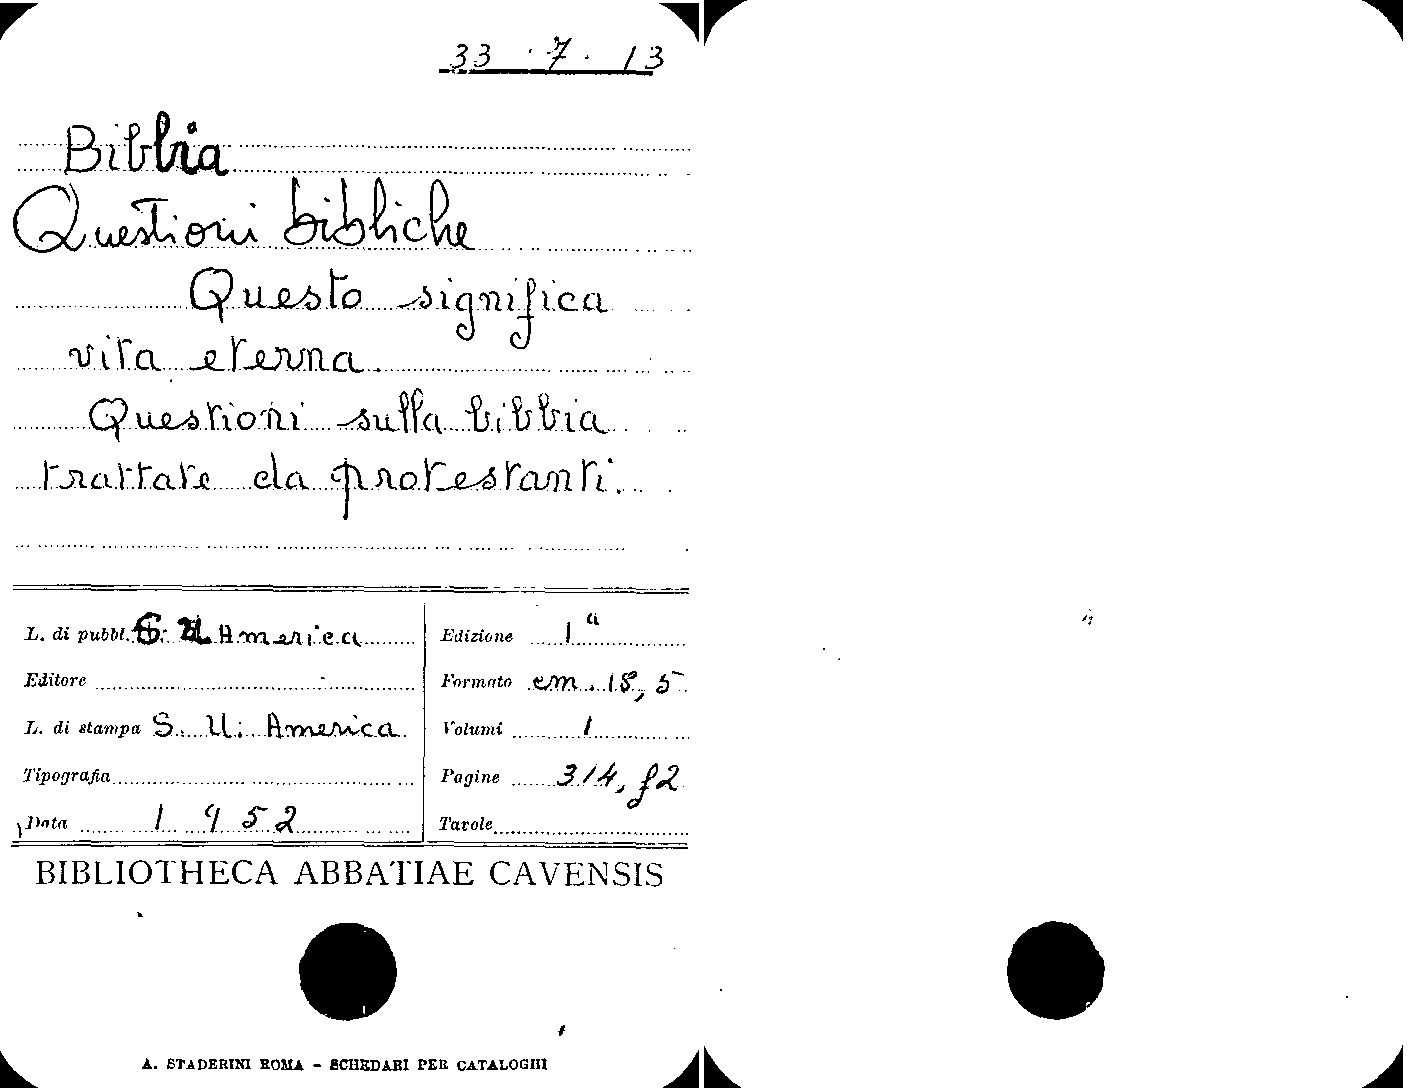 33 . 7 . 13
Bibbia
Questioni bibliche
Questo significa
vita eterna.
Questioni sulla bibbia
trattate da protestanti.
L. di pubbl. S. U. America
Editore
L. di stampa S. U. America
Tipografia
Data 1952
Edizione 1ª
Formato cm. 18,5
Volumi 1
Pagine 314, f2
Tavole
BIBLIOTHECA ABBATIAE CAVENSIS
A. STADERINI ROMA - SCHEDARI PER CATALOGHI